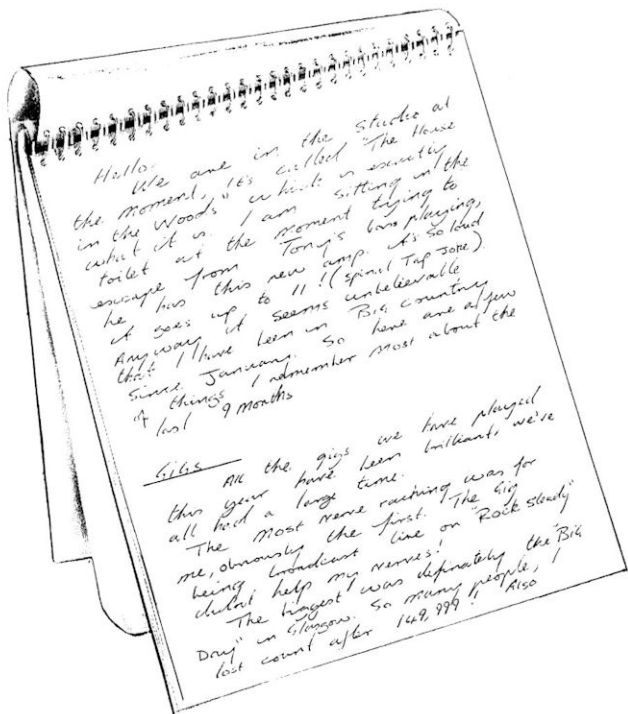 Hello.
We are in the studio at
the moment, it's called "The House
in the Woods" which is exactly
what it is. I am sitting in the
toilet at the moment trying to
escape from Tony's bass playing,
he has this new amp. It's so loud
it goes up to 11! (spinal Tap joke)
Anyway it seems unbelievable
that I have been in Big Country
since January. So here are a few
of things I remember most about the
last 9 months
Gigs
All the gigs we have played
this year have been brilliant, we've
all had a large time.
The most nerve racking was for
me, obviously the first. The gig
being broadcast live on "Rock Steady"
didn't help my nerves!
The biggest was definately the "Big
Day" in Glasgow. So many people, I
lost count after 149,999!! Also